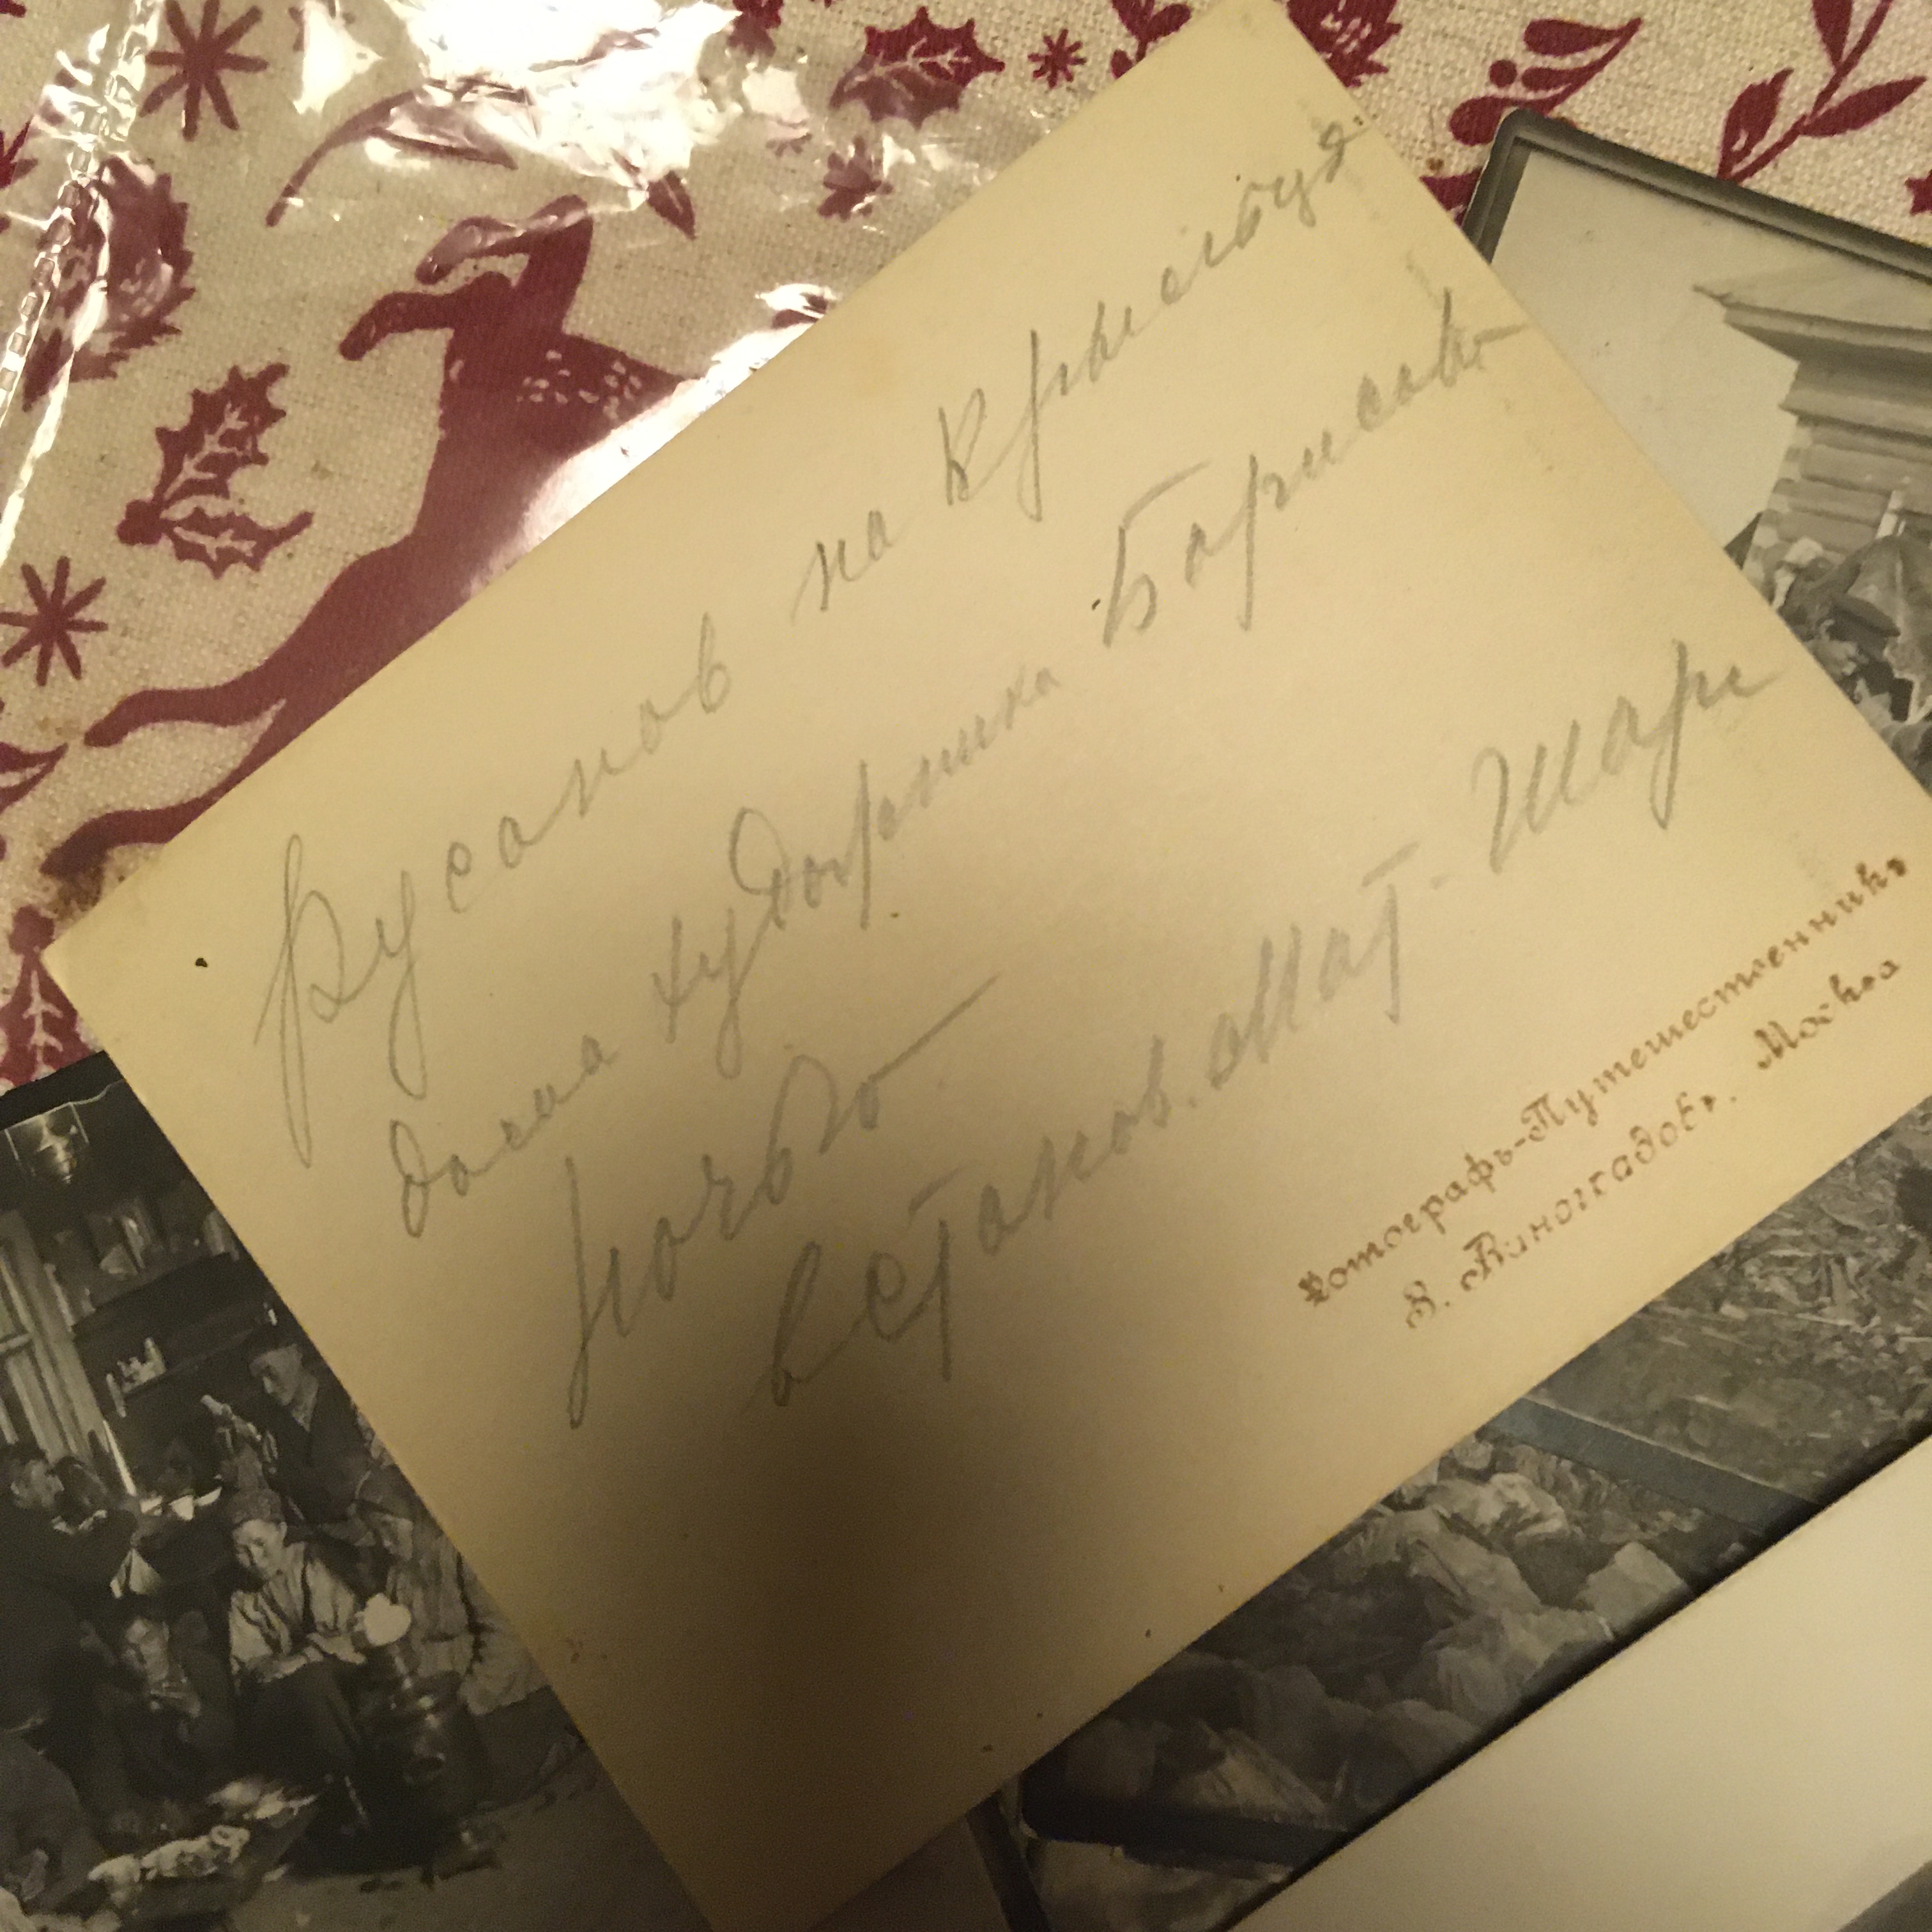 Русанов на крыльцуѣ
дома художника Борисова
ночью
в Станов. Мат. Шаре
Фотографъ-Путешественникъ
Я. Виноградовъ. Москва